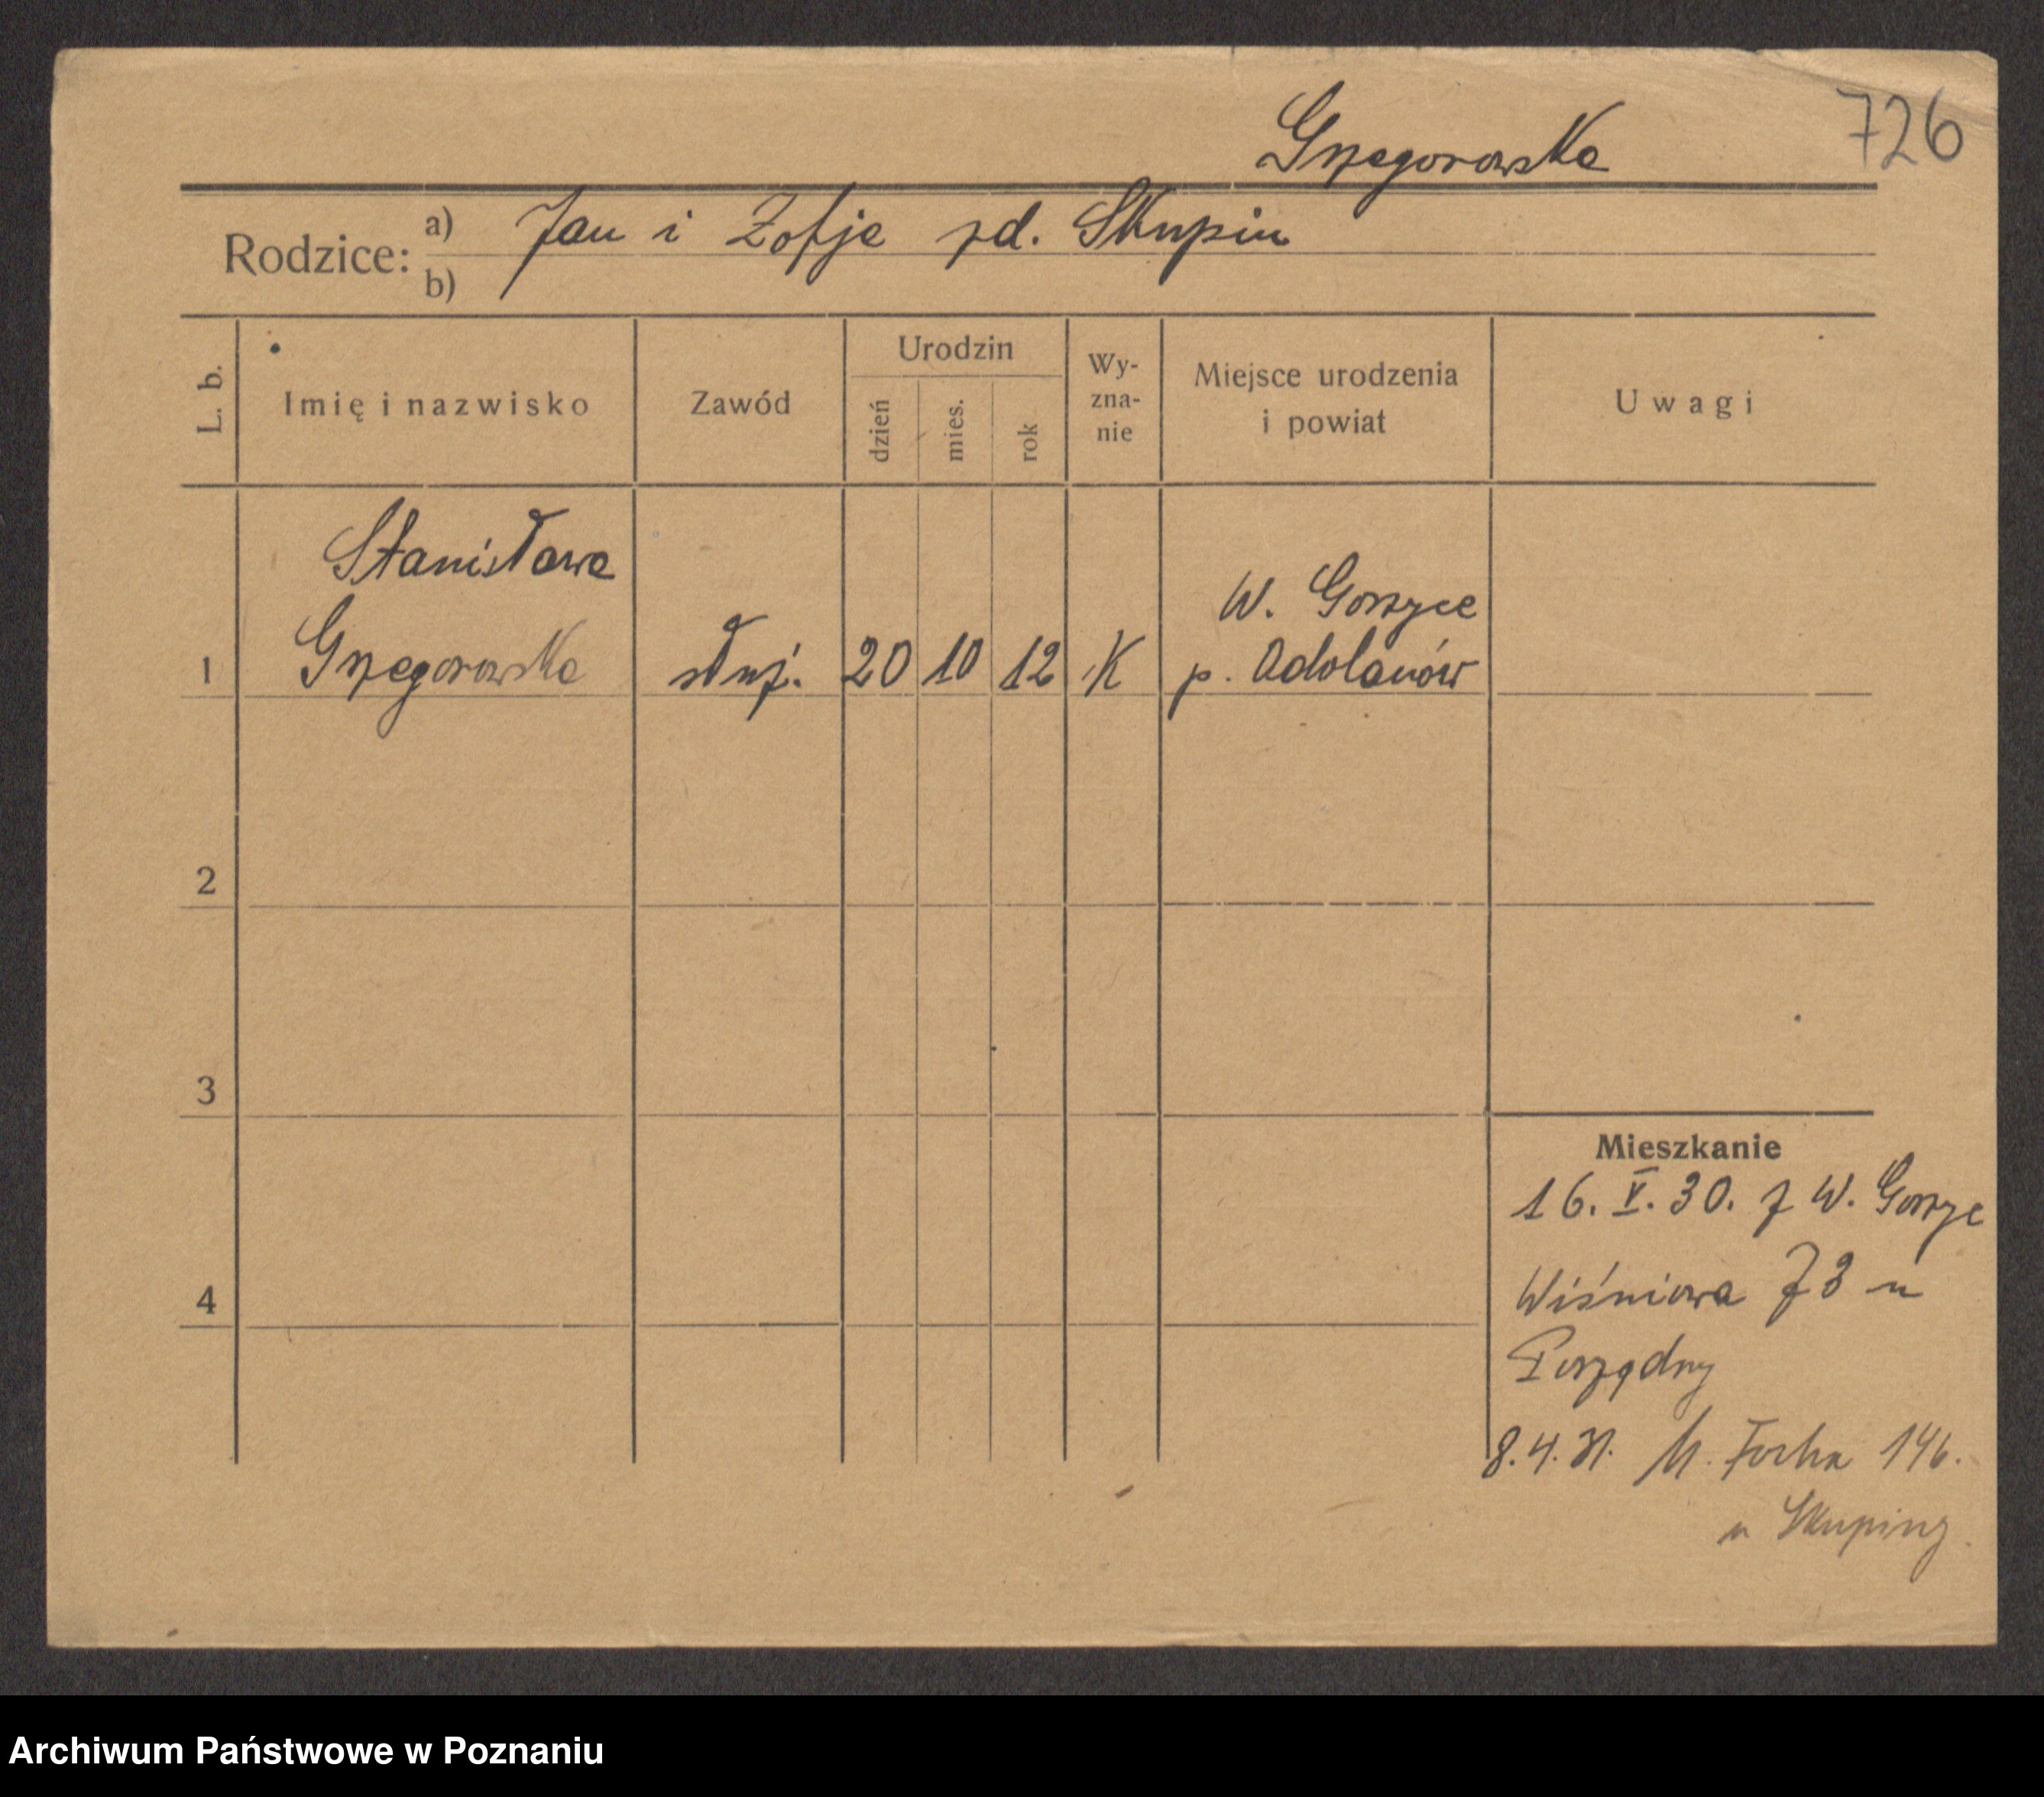 726
Grzegorowska
Rodzice: a) Jan i Zofja zd. Skupin
b)
L. b.
Imię i nazwisko
Zawód
Urodzin
dzień
mies.
rok
Wy-
zna-
nie
Miejsce urodzenia
i powiat
Uwagi
Stanisława
W. Gorzyce
1 Grzegorowska służ. 20 10 12 K p. Odolanów
2
3
Mieszkanie
16. V. 30. z W. Gorzyc
4
Wiśniowa 73 u
Porządny
8.4.31. M. Focha 146.
u Skupiny
Archiwum Państwowe w Poznaniu